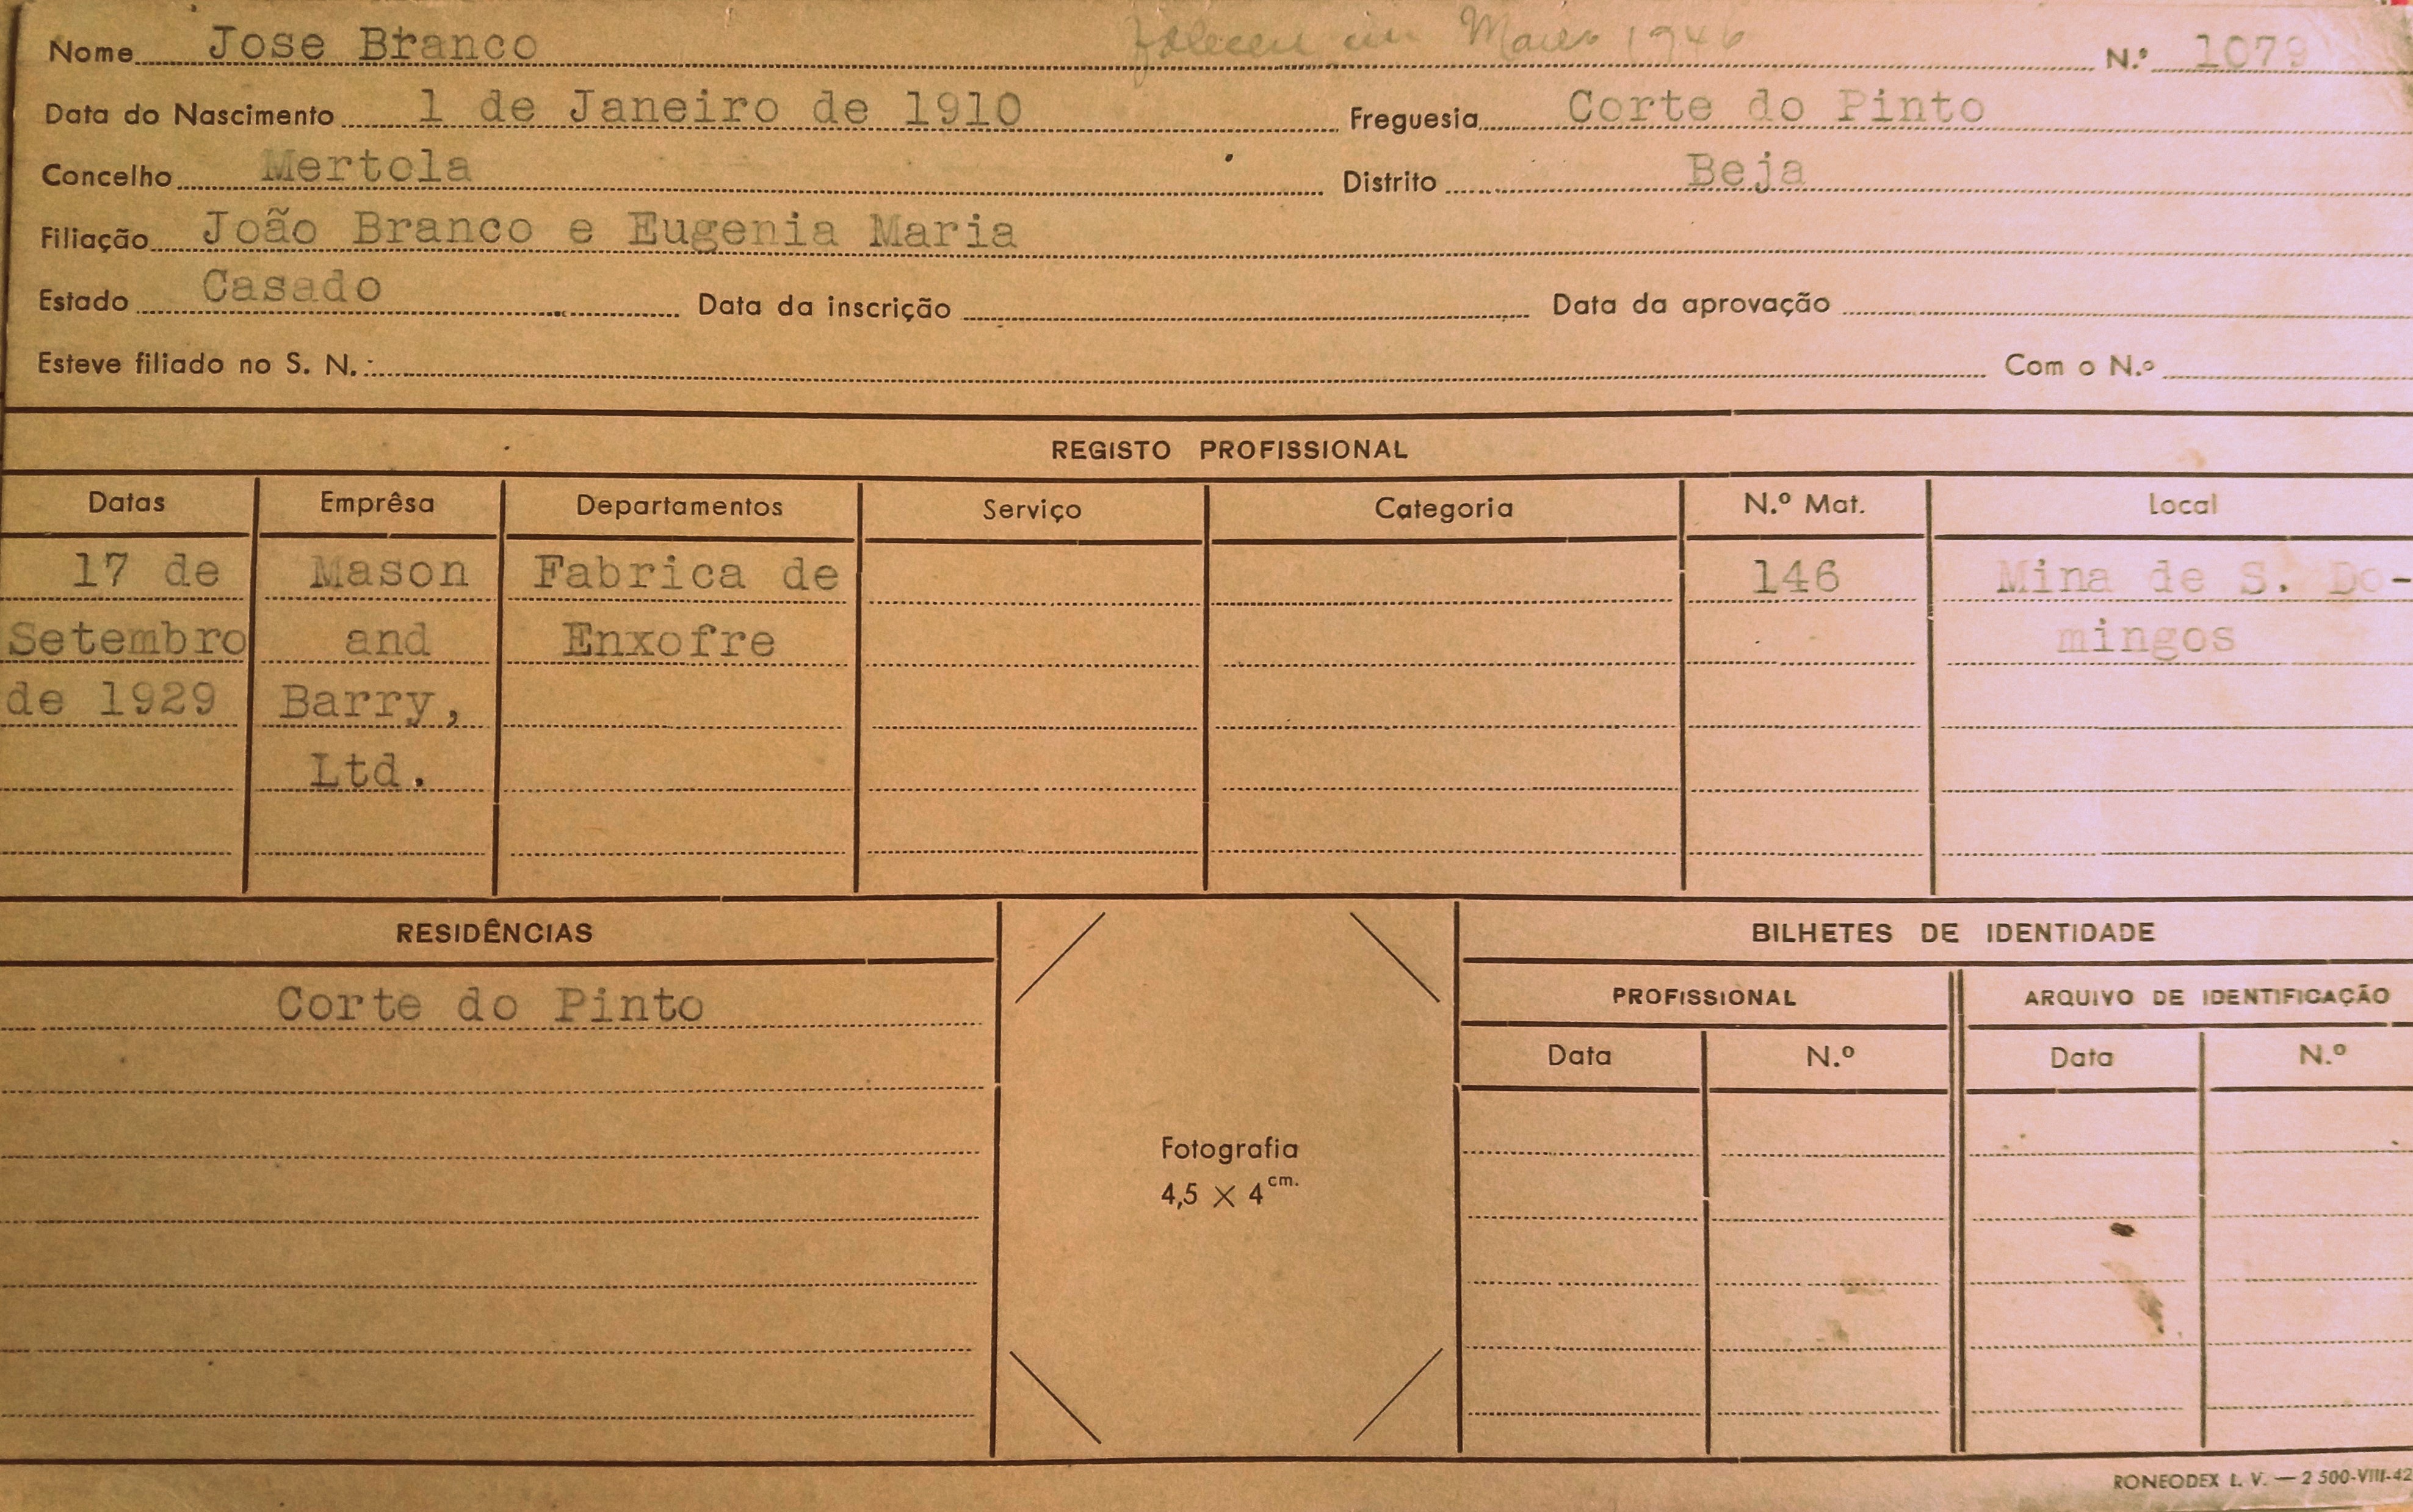 Nome Jose Branco faleceu em 1946 N.º 1079
Data do Nascimento 1 de Janeiro de 1910 Freguesia Corte do Pinto
Concelho Mertola Distrito Beja
Filiação João Branco e Eugenia Maria
Estado Casado Data da inscrição Data da aprovação
Esteve filiado no S. N. Com o N.º
REGISTO PROFISSIONAL
Datas Emprêsa Departamentos Serviço Categoria N.º Mat. Local
17 de Mason Fabrica de 146 Mina de S. Do-
Setembro and Enxofre mingos
de 1929 Barry,
Ltd.
RESIDÊNCIAS
Corte do Pinto
Fotografia
4,5 × 4 cm.
BILHETES DE IDENTIDADE
PROFISSIONAL ARQUIVO DE IDENTIFICAÇÃO
Data N.º Data N.º
RONEODEX L. V. — 2 500-VIII-42